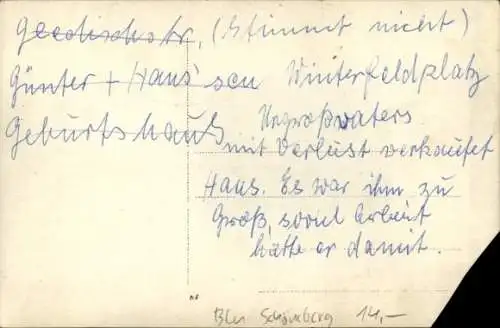 (Stimmt nicht)
Günter + Hans' sen Winterfeldplatz
Geburtshaus Urgroßvaters
mit Verlust verkauftet
Haus. Es war ihm zu
Groß, soviel Arbeit
hätte er damit.
Bln Schöneberg 14,-